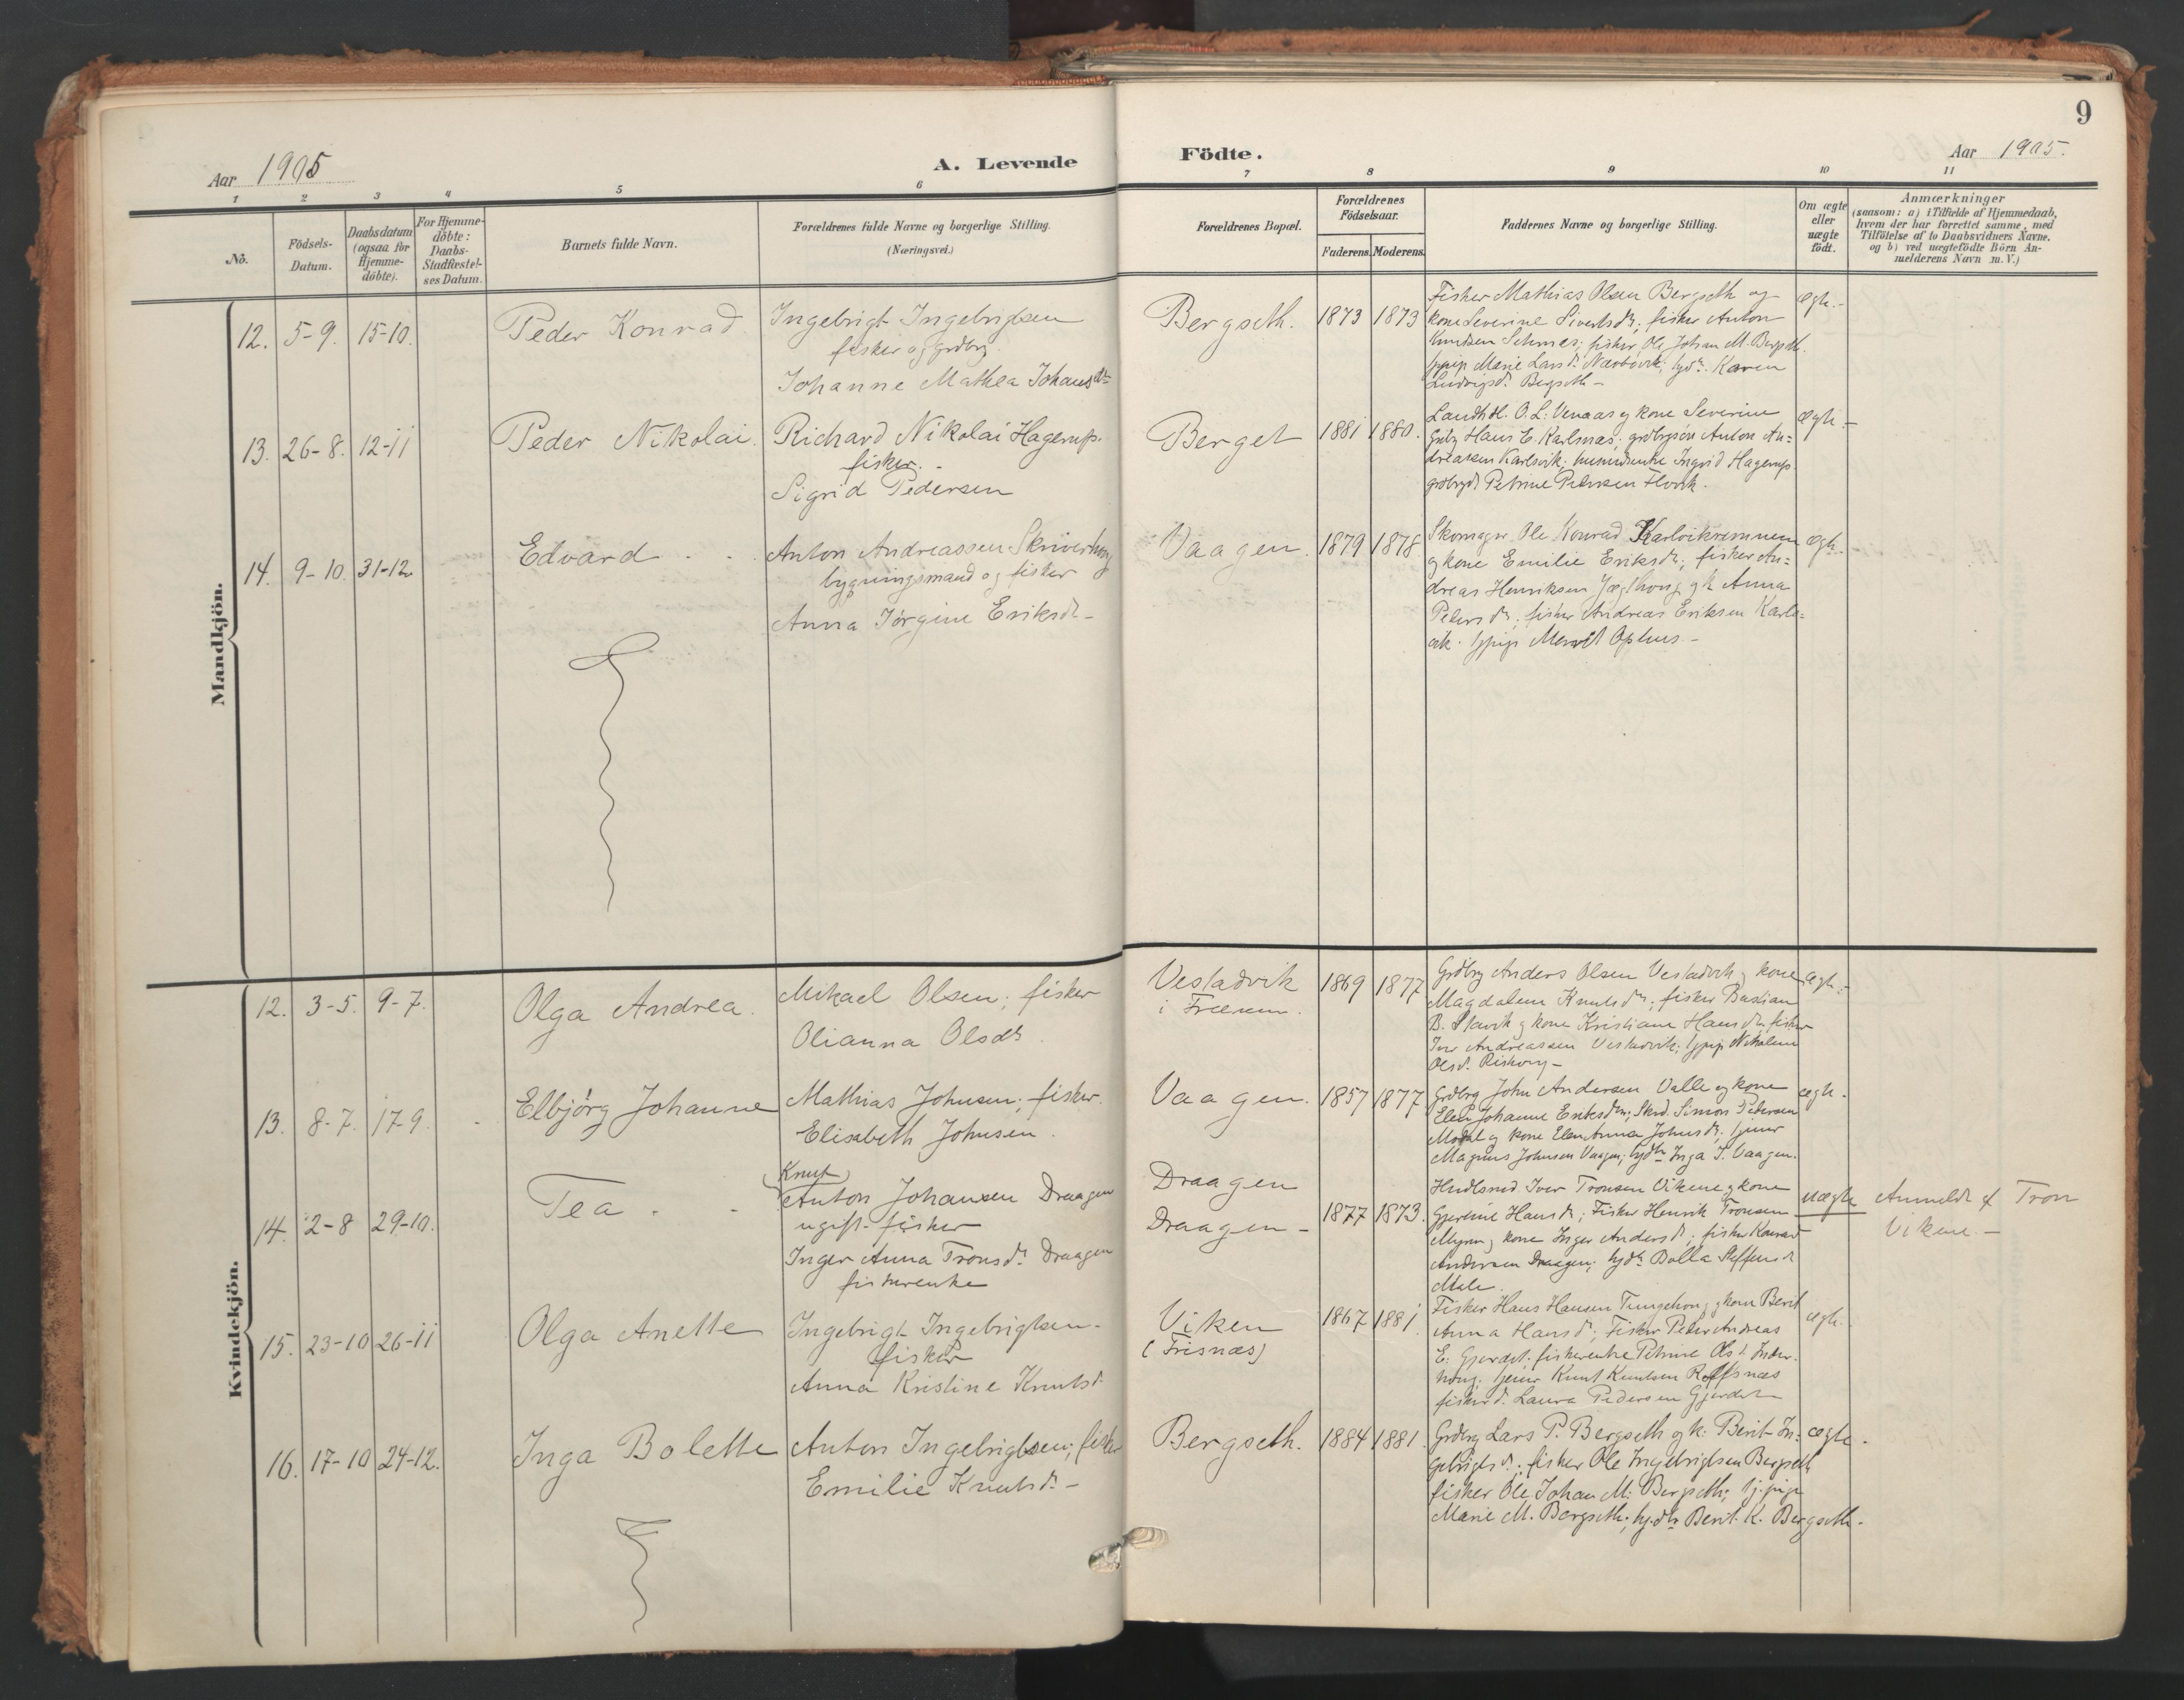 9
Aar 1905
A. Levende
Födte.
Aar 1905.
1 2 3 4 5 6
7 8 9 10 11
No.
Födsels-
Datum.
Daabsdatum
(ogsaa for
Hjemme-
döbte).
For Hjemme-
döbte:
Daabs-
Stadfæstel-
ses Datum.
Barnets fulde Navn.
Forældrenes fulde Navne og borgerlige Stilling.
(Næringsvei.)
Forældrenes Bopæl.
Forældrenes
Födselsaar.
Faderens. Moderens.
Faddernes Navne og borgerlige Stilling.
Om ægte
eller
uægte
födt.
Anmærkninger
(saasom: a) i Tilfælde af Hjemmedaab,
hvem der har forrettet samme, med
Tilföielse af to Daabsvidners Navne,
og b) ved uægtefödte Börn An-
melderens Navn m. V.)
Mandkjön.
12. 5-9. 15-10. Peder Konrad
Ingebrigt Ingebrigtsen
fisker og grdbrg.
Johanne Mathea Johansdtr
Bergseth. 1873 1873
Fisker Mathias Olsen Bergseth og
kone Severine Sivertsdtr; fisker Anton
Knudsen; fisker Ole Johan M. Bergseth.
Marie Larsd.
Karen
Ludvigsd. Bergseth -
ægte.-
13. 26-8. 12-11 Peder Nikolai.
Richard Nikolai Hagerup.
fisker. -
Sigrid Pedersen
Berget 1881 1880.
Landh. O. L. Venaas og kone Severine
Hans E. Karlsnæs; Anton An-
dreassen Karlsvik; Ingrid Hagerup.
Petrine Petersen
ægte.-
14. 9-10. 31-12 Edvard
Anton Andreassen Skrivershaug
bygningsmand og fisker
Anna Jørgine Eriksdtr -
Vaagen. 1879 1878
Skomager Ole Konrad
og kone Emilie Eriksdtr; fisker An-
dreas Henriksen og k Anna
Petersdtr; fisker Andreas Eriksen Karls-
vik. Ophus. -
ægte.
Kvindekjön.
12. 3-5. 9-7. Olga Andrea.
Mikael Olsen; fisker
Olianna Olsdtr
Vestadvik
i Fræenen.
1869 1877
Grdbrg Anders Olsen Vestadvik og kone
Magdalene Knutsdtr; fisker Bastian
B. Stavik og kone Kristiane Hansdtr. fisker
Iver Andreassen Vestadvik; Nikoline
Olsd.
ægte.-
13. 8-7. 17-9. Elbjörg Johanne
Mathias Johnsen; fisker.
Elisabeth Johnsen.
Vaagen. 1857 1877
Grdbrg John Andersen Valle og kone
Elen Johanne Eriksdtr; Simon Pedersen
og kone Elen Anna Johnsdtr;
Magnus Johnsen Vaagen; Inga J. Vaagen.
ægte.
14. 2-8 29-10. Tea
Knut
Anton Johansen Draagen
ugift fisker
Inger Anna Tronsdtr Draagen
fiskerenke
Draagen
Draagen -
1877 1873.
Iver Tronsen Vikene og kone
Hansdtr; Fisker Henrik Tronsen
kone Inger Andersdtr; fisker Konrad
Andersen Draagen; Bolla Steffensdtr
Male.
uægte
Anmeldt af Tron
Vikene. -
15. 23-10 26-11 Olga Anette
Ingebrigt Ingebrigtsen -
fisker
Anna Kristine Knutsd.
Viken
(Frisnæs)
1867 1881
Fisker Hans Hansen og kone Berit
Anna Hansdtr; Fisker Peder Andreas
E. Gjerdet; fiskerenke Petrine Olsd.
Knut Knudsen
Laura Pedersen Gjerdet -
ægte.
16. 17-10 24-12. Inga Bolette
Anton Ingebrigtsen; fisker
Emilie Knutsd. -
Bergseth. 1884 1881.
Grdbrg Lars P. Bergseth og k. Berit In-
gebrigtsd.; fisker Ole Ingebrigtsen Bergseth
fisker Ole Johan M. Bergseth;
Marie M. Bergseth; Berit K. Bergseth.
ægte.